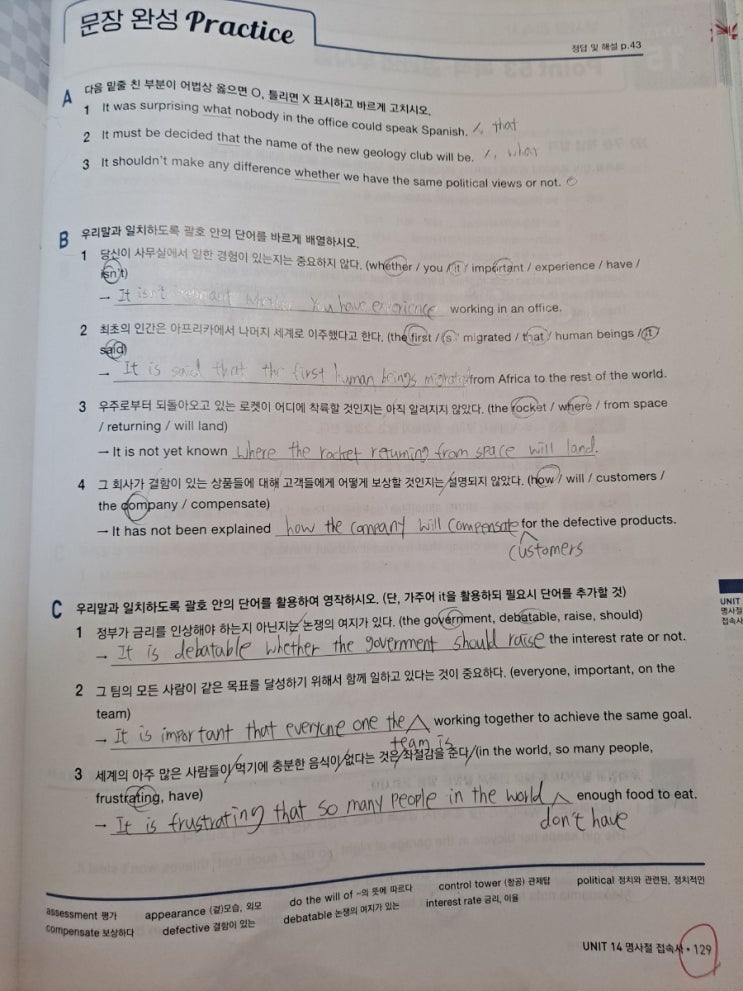 문장 완성 Practice
정답 및 해설 p.43
A 다음 밑줄 친 부분이 어법상 옳으면 O, 틀리면 X 표시하고 바르게 고치시오.
1 It was surprising what nobody in the office could speak Spanish. /, that
2 It must be decided that the name of the new geology club will be. /, what
3 It shouldn't make any difference whether we have the same political views or not. O
B 우리말과 일치하도록 괄호 안의 단어를 바르게 배열하시오.
1 당신이 사무실에서 일한 경험이 있는지는 중요하지 않다. (whether / you / it / important / experience / have /
isn't)
→ It isn't important whether you have experience working in an office.
2 최초의 인간은 아프리카에서 나머지 세계로 이주했다고 한다. (the first / is / migrated / that / human beings / it
said)
→ It is said that the first human beings migrated from Africa to the rest of the world.
3 우주로부터 되돌아오고 있는 로켓이 어디에 착륙할 것인지는 아직 알려지지 않았다. (the rocket / where / from space
/ returning / will land)
→ It is not yet known where the rocket returning from space will land.
4 그 회사가 결함이 있는 상품들에 대해 고객들에게 어떻게 보상할 것인지는 설명되지 않았다. (how / will / customers /
the company / compensate)
→ It has not been explained how the company will compensate for the defective products.
customers
C 우리말과 일치하도록 괄호 안의 단어를 활용하여 영작하시오. (단, 가주어 it을 활용하되 필요시 단어를 추가할 것)
1 정부가 금리를 인상해야 하는지 아닌지는 논쟁의 여지가 있다. (the government, debatable, raise, should)
→ It is debatable whether the goverment should raise the interest rate or not.
2 그 팀의 모든 사람이 같은 목표를 달성하기 위해서 함께 일하고 있다는 것이 중요하다. (everyone, important, on the
team)
→ It is important that everyone one the working together to achieve the same goal.
team is
3 세계의 아주 많은 사람들이 먹기에 충분한 음식이 없다는 것은 좌절감을 준다. (in the world, so many people,
frustrating, have)
→ It is frustrating that so many people in the world enough food to eat.
don't have
assessment 평가 appearance (겉)모습, 외모 do the will of ~의 뜻에 따르다 control tower (항공) 관제탑 political 정치와 관련된, 정치적인
compensate 보상하다 defective 결함이 있는 debatable 논쟁의 여지가 있는 interest rate 금리, 이율
UNIT
명사절
접속사
UNIT 14 명사절 접속사 • 129